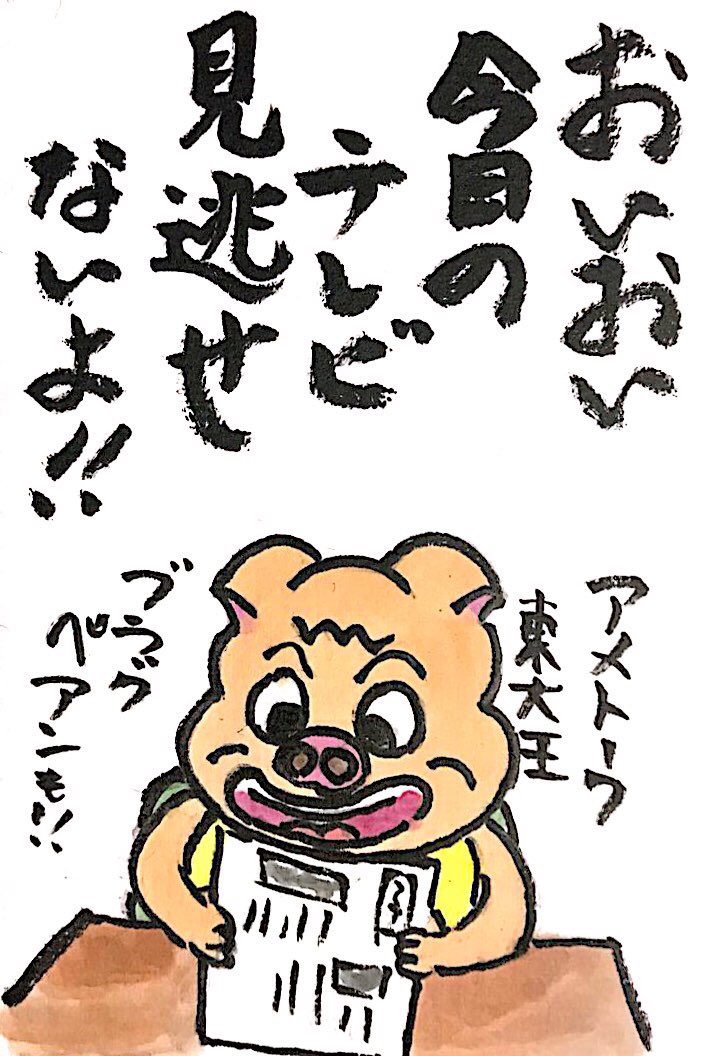 おいおい
今日の
テレビ
見逃せ
ないよ!!
アメトーーク
東大王
プラダ
ペアンも!!